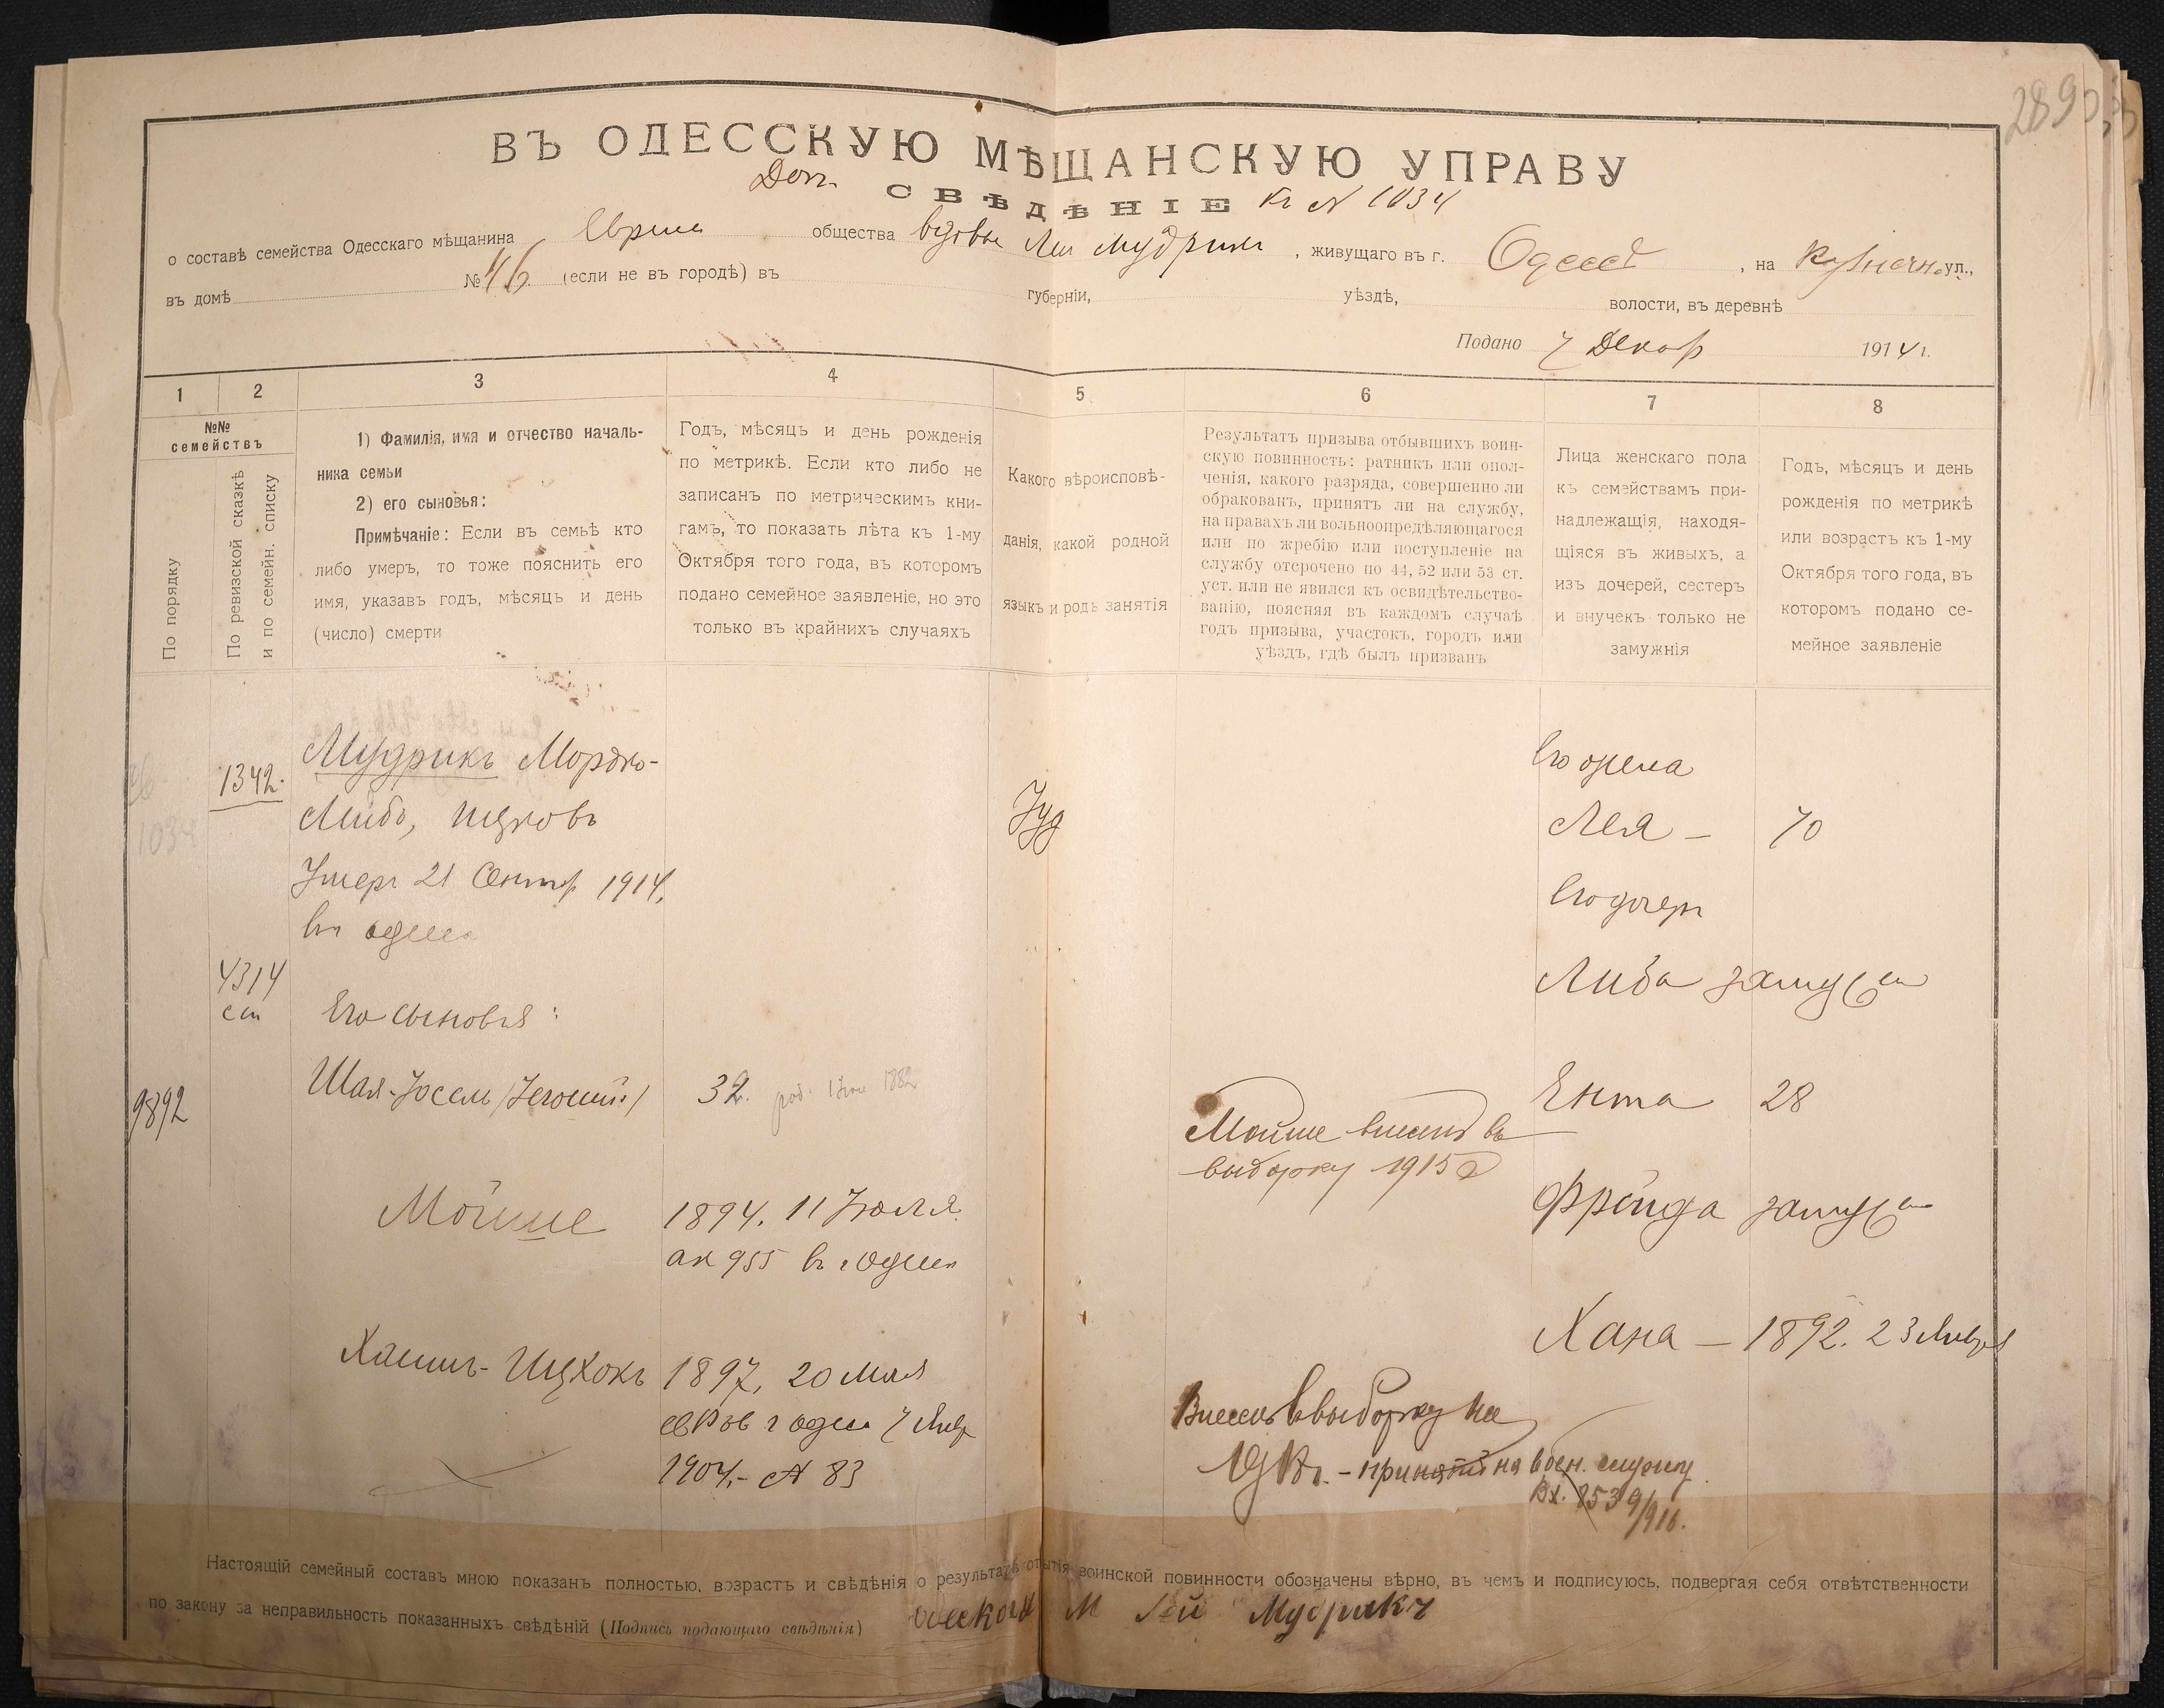 289
ВЪ ОДЕССКУЮ МѢЩАНСКУЮ УПРАВУ
Доп. СВѢДѢНІЕ къ № 1034
о составѣ семейства Одесскаго мѣщанина общества вдовы Леи Мудрикъ, живущаго въ г. Одессѣ, на Кузнечн. ул.,
въ домѣ № 46 (если не въ городѣ) въ губерніи, уѣздѣ, волости, въ деревнѣ
Подано 7 Декабр 1914 г.
1 2 3 4 5 6 7 8
№№ семействъ
По порядку
По ревизской сказкѣ
и по семейн. списку
1) Фамилія, имя и отчество началь-
ника семьи
2) его сыновья:
Примѣчаніе: Если въ семьѣ кто
либо умеръ, то тоже пояснить его
имя, указавъ годъ, мѣсяцъ и день
(число) смерти
Годъ, мѣсяцъ и день рожденія
по метрикѣ. Если кто либо не
записанъ по метрическимъ кни-
гамъ, то показать лѣта къ 1-му
Октября того года, въ которомъ
подано семейное заявленіе, но это
только въ крайнихъ случаяхъ
Какого вѣроисповѣ-
данія, какой родной
языкъ и родъ занятія
Результатъ призыва отбывшихъ воин-
скую повинность: ратникъ или опол-
ченія, какого разряда, совершенно ли
обракованъ, принятъ ли на службу,
на правахъ ли вольноопредѣляющагося
или по жребію или поступленіе на
службу отсрочено по 44, 52 или 53 ст.
уст. или не явился къ освидѣтельство-
ванію, поясняя въ каждомъ случаѣ
годъ призыва, участокъ, городъ или
уѣздъ, гдѣ былъ призванъ
Лица женскаго пола
къ семействамъ при-
надлежащія, находя-
щіяся въ живыхъ, а
изъ дочерей, сестеръ
и внучекъ только не
замужнія
Годъ, мѣсяцъ и день
рожденія по метрикѣ
или возрастъ къ 1-му
Октября того года, въ
которомъ подано се-
мейное заявленіе
1034
1342.
Мудрикъ Мордко-
Лейбъ, Ицковъ
Умеръ 21 Сентяб 1914.
въ Одессѣ
Іуд
Его жена
Лея — 70
Его дочери
4314
сп
Либа замуж
Его сыновья:
9892
Шая-Іосель 32. род. 1882
Ента 28
Мойше внесенъ въ
выборку 1915 г
Мойше 1894. 11 Іюля
ак 955 въ г Одессѣ
Фрейда замуж
Хана — 1892. 23 Января
Хаимъ-Ицхокъ 1897, 20 Мая
1904 — № 83
Внесенъ въ выборку на
принятъ на воен. службу.
Вх. 8539/916.
Настоящій семейный составъ мною показанъ полностью, возрастъ и свѣдѣнія о результатѣ отбытія воинской повинности обозначены вѣрно, въ чемъ и подписуюсь, подвергая себя отвѣтственности
по закону за неправильность показанныхъ свѣдѣній (Подпись подающаго свѣдѣнія) М Лей Мудрикъ